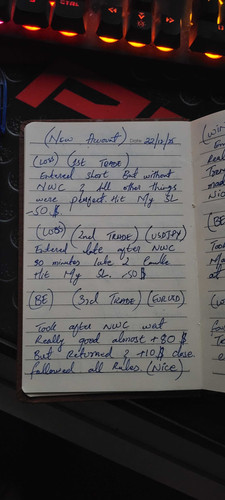 (New Account) DATE 22/12/25
(LOSS) (1st TRADE)
Entered short But without
NWC & All other things
were perfect Hit My SL
-50 $
(LOSS) (2nd TRADE) (USDJPY)
Entered late after NWC
30 minutes late 2 Candle
Hit My SL -50 $
(BE) (3rd TRADE) (EURUSD)
Took after NWC wait
Really good almost +80 $
But Returned & +10 $ close
followed all Rules (Nice)
(WIN
Real
(BE
Took
at
(LOSS
CTRL